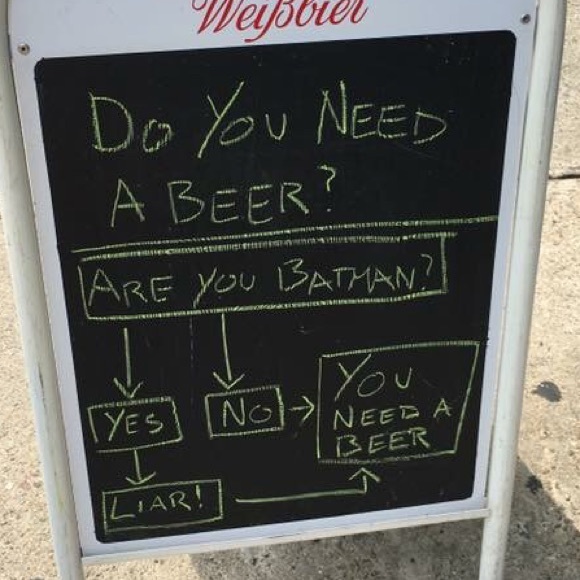 Weißbier
DO YOU NEED
A BEER?
ARE YOU BATMAN?
YES
NO
YOU
NEED A
BEER
LIAR!